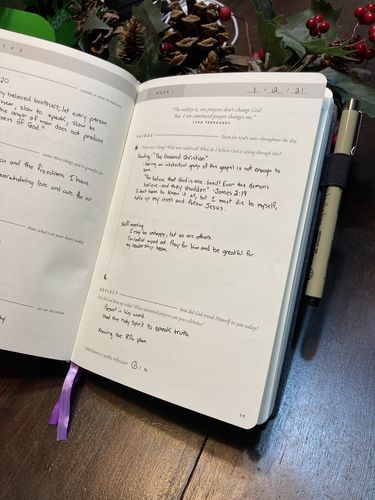 20
y beloved brothers: let every person
hear, slow to speak, slow to
anger of man does not produce
ness of God."
things you're grateful for
ca and the freedoms I have.
overwhelming love and care for
share what's on your heart today
set an intention
WEEK 1
1 / 2 / 21
"The reality is, my prayers don't change God.
But, I am convinced prayer changes me."
LYSA TERKEURST
KAIROS
listen for God's voice throughout the day
What was I doing? What was said/read? What do I believe God is saying through this?
Reading "The Unsaved Christian"
- having an intellectual grasp of the gospel is not enough to
save.
"You believe that God is one. Good! Even the demons
believe - and they shudder." - James 2:19
I don't have to know it all, but I must die to myself,
take up my cross and follow Jesus.
Staff meeting
I may be unhappy, but so are others.
I'm looking around at. Pray for him and be grateful for
my leadership team.
REFLECT
how did God reveal Himself to you today?
How did God show up today? What answered prayers can you celebrate?
Present in his word.
Used the Holy Spirit to speak truth.
Knowing the plan
Add kairos to weekly reflection? Y / N
19